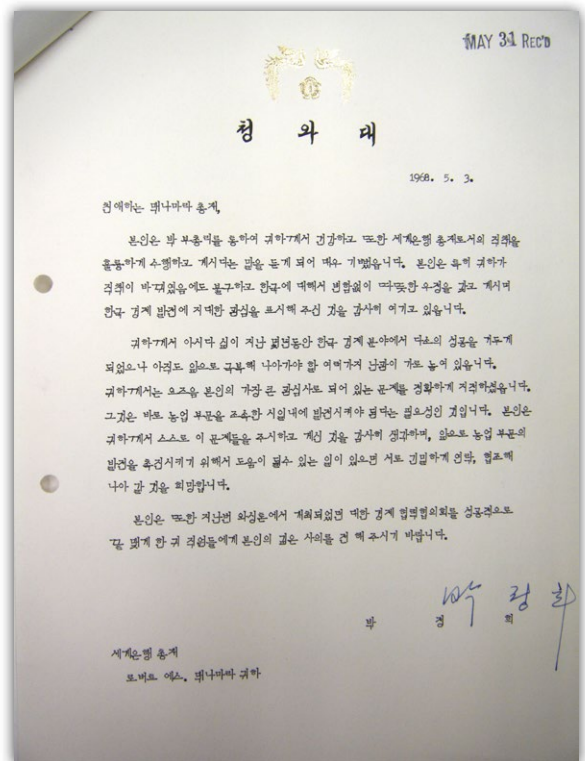 MAY 31 REC'D
청 와 대
1968. 5. 3.
친애하는 맥나마라 총재,
본인은 박 부총리를 통하여 귀하께서 건강하고 또한 세계은행 총재로서의 직책을
훌륭하게 수행하고 계시다는 말을 듣게 되어 매우 기뻤읍니다. 본인은 특히 귀하가
직책이 바뀌었음에도 불구하고 한국에 대해서 변함없이 따뜻한 우정을 갖고 계시며
한국 경제 발전에 지대한 관심을 표시해 주신 것을 감사히 여기고 있읍니다.
귀하께서 아시다 싶이 지난 몇년동안 한국 경제 분야에서 다소의 성공을 거두게
되었으나 아직도 앞으로 극복해 나아가야 할 여러가지 난관이 가로 놓여 있읍니다.
귀하께서는 요즈음 본인의 가장 큰 관심사로 되어 있는 문제를 정확하게 지적하셨읍니다.
그것은 바로 농업 부문을 조속한 시일내에 발전시켜야 된다는 필요성인 것입니다. 본인은
귀하께서 스스로 이 문제들을 주시하고 계신 것을 감사히 생각하며, 앞으로 농업 부문의
발전을 촉진시키기 위해서 도움이 될수 있는 일이 있으면 서로 긴밀하게 연락, 협조해
나아 갈 것을 희망합니다.
본인은 또한 지난번 와싱톤에서 개최되었던 대한 경제 협력협의회를 성공적으로
끝 맺게 한 귀 직원들에게 본인의 깊은 사의를 전 해 주시기 바랍니다.
박정희
박 정 희
세계은행 총재
로버트 에스. 맥나마라 귀하